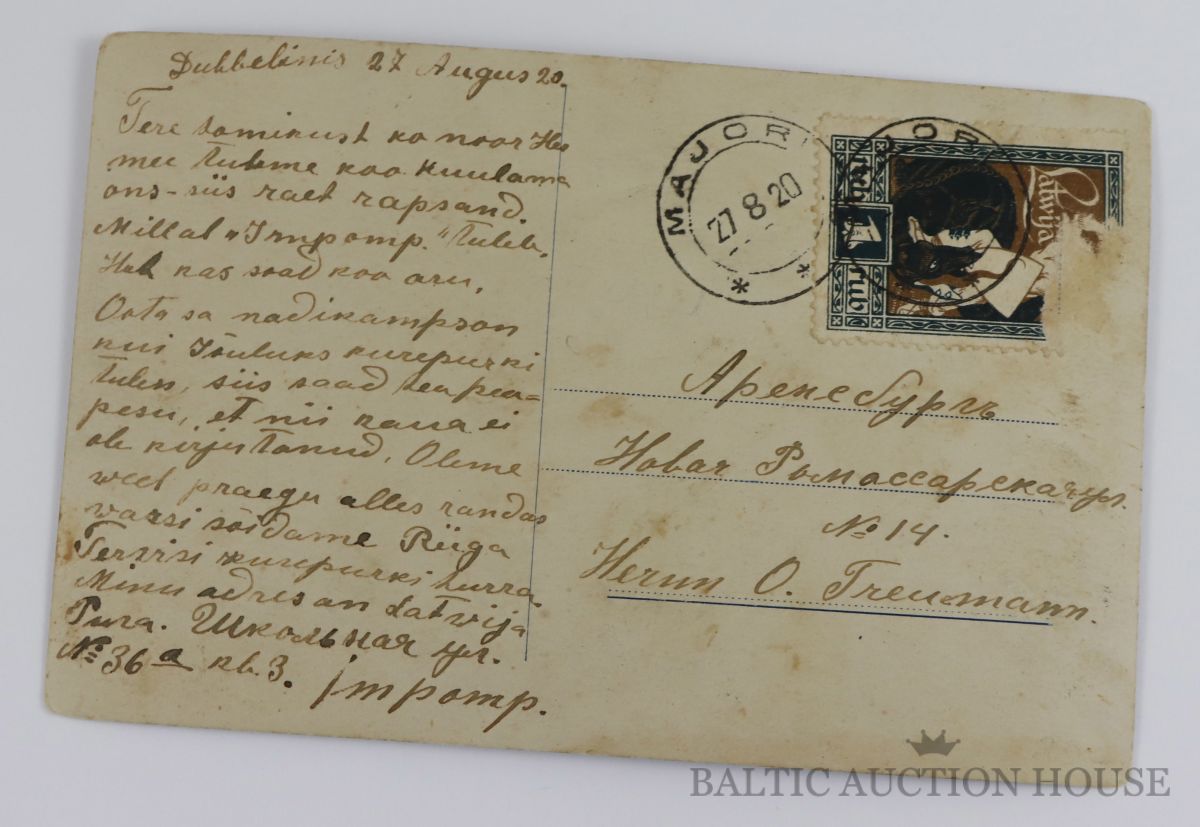 Dubbelinis 27 Augus 20.
Tere komikust ko noor Her
mei tuleme koo kuulama
ons-siis raet rapsand.
Millal "Impomp." tuleb.
kas saad koo aru.
Oota sa nadikampson
kui Jõuluks kurepurki
tulen, siis saad seapea-
pesu, et nii kaua ei
ole kirjutanud. Oleme
weel praegu alles randas
warsi sõidame Riiga
Terwisi kurepurki
Minu adres an Latwija
Рига. Школьная ул.
№ 36 a кв. 3. jmpomp.
MAJORI
27 8 20
MAJORI
Latwija
1
rub
Аренсбургъ
Новая Ромассарская ул.
№ 14.
Herrn O. Treumann.
BALTIC AUCTION HOUSE